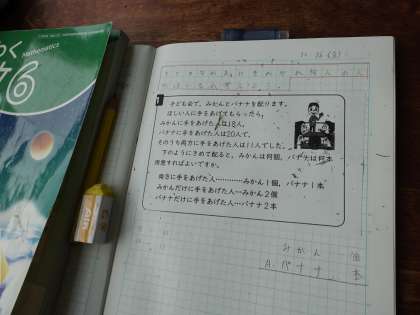 わく
Mathematics
6
1
子ども会で，みかんとバナナを配ります。
ほしい人に手をあげてもらったら，
みかんに手をあげた人は18人，
バナナに手をあげた人は20人で，
そのうち両方に手をあげた人は11人でした。
下のようにきめて配ると，みかんは何個，バナナは何本
用意すればよいですか。
両方に手をあげた人…………みかん1個，バナナ1本
みかんだけに手をあげた人…みかん2個
バナナだけに手をあげた人…バナナ2本
みかん 個
A. バナナ 本